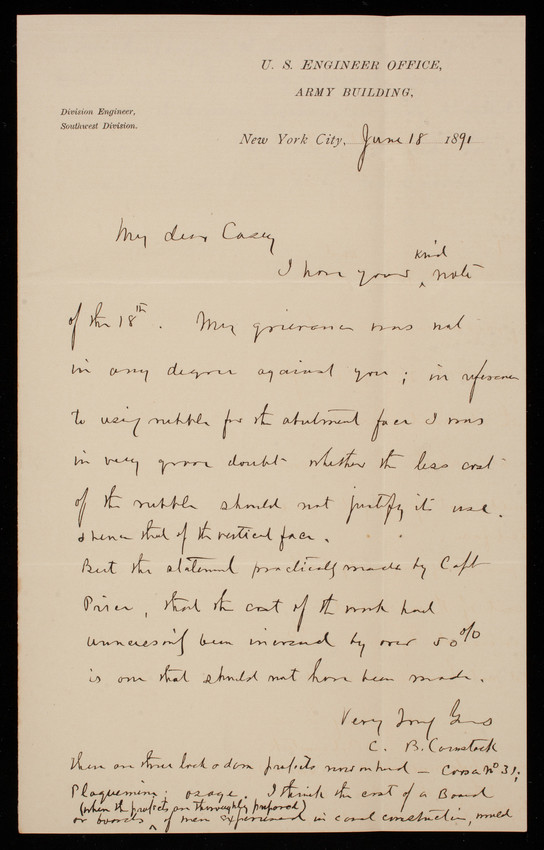 U. S. ENGINEER OFFICE,
ARMY BUILDING,
Division Engineer,
Southwest Division.
New York City, June 18 1891
My dear Casey
I have your kind note
of the 18th. My grievance was not
in any degree against you; in reference
to using rubble for the abutment face I was
in very grave doubt whether the less cost
of the rubble should not justify its use.
& hence that of the vertical face.
But the statement practically made by Capt
Price, that the cost of the work had
unnecessarily been increased by over 50%
is one that should not have been made.
Very Truly Yours
C. B. Comstock
There are three lock & dam projects now on hand — Coosa No 31;
Plaquemine; Osage. I think the cost of a Board
(when the projects are thoroughly prepared)
or boards of men experienced in canal construction, would